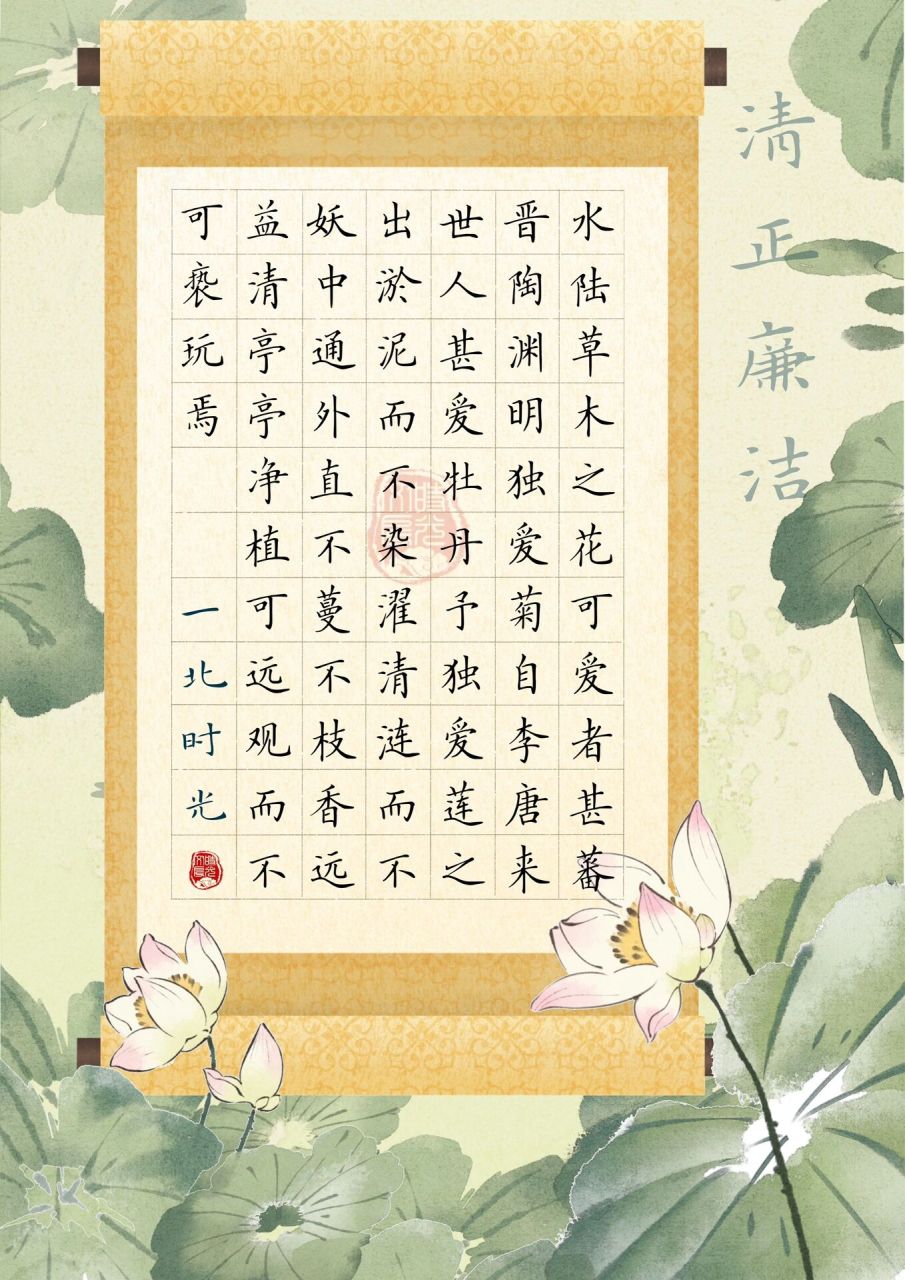 清正廉洁
水陆草木之花可爱者甚蕃
晋陶渊明独爱菊自李唐来
世人甚爱牡丹予独爱莲之
出淤泥而不染濯清涟而不
妖中通外直不蔓不枝香远
益清亭亭净植可远观而不
可亵玩焉
一北时光